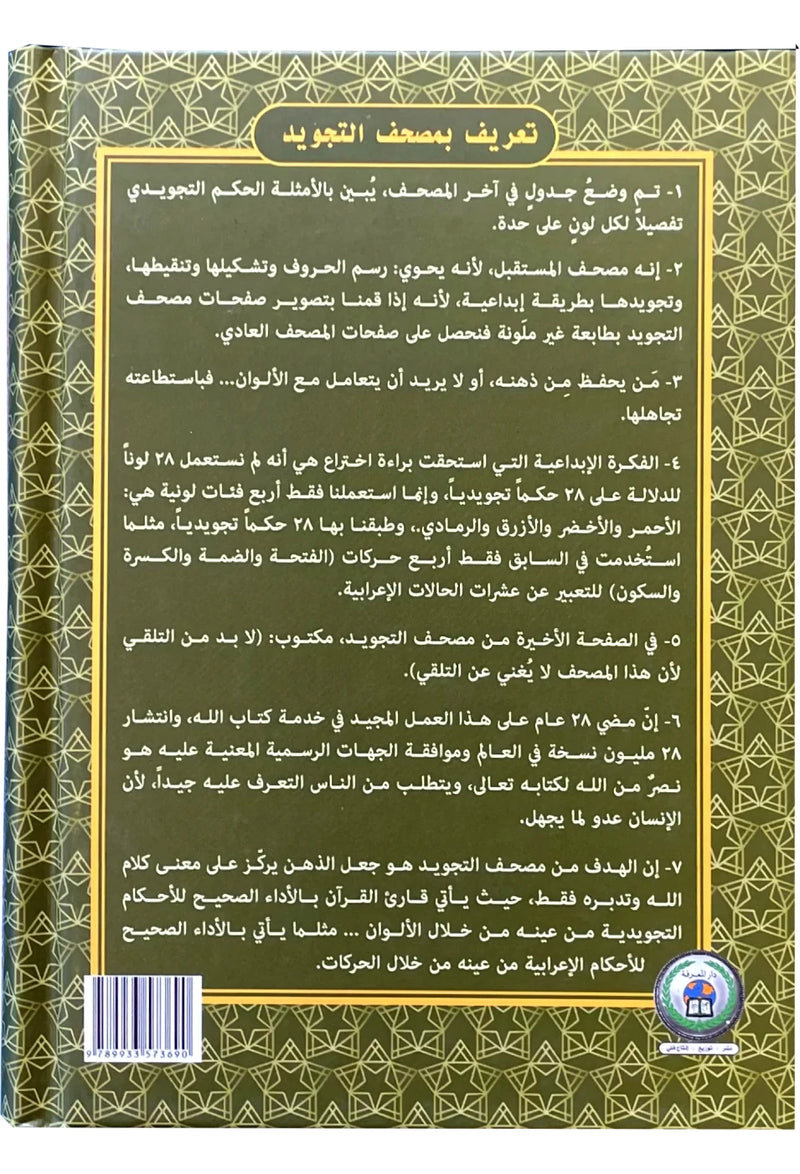 تعريف بمصحف التجويد
١- تم وضعُ جدولٍ في آخر المصحف، يُبين بالأمثلة الحكم التجويدي
تفصيلاً لكل لونٍ على حدة.
٢- إنه مصحف المستقبل، لأنه يحوي: رسم الحروف وتشكيلها وتنقيطها،
وتجويدها بطريقة إبداعية، لأنه إذا قمنا بتصوير صفحات مصحف
التجويد بطابعة غير ملَونة فنحصل على صفحات المصحف العادي.
٣- مَن يحفظ مِن ذهنه، أو لا يريد أن يتعامل مع الألوان... فباستطاعته
تجاهلها.
٤- الفكرة الإبداعية التي استحقت براءة اختراع هي أنه لم نستعمل ٢٨ لوناً
للدلالة على ٢٨ حكماً تجويدياً، وإنما استعملنا فقط أربع فئات لونية هي:
الأحمر والأخضر والأزرق والرمادي.، وطبقنا بها ٢٨ حكماً تجويدياً، مثلما
استُخدمت في السابق فقط أربع حركات (الفتحة والضمة والكسرة
والسكون) للتعبير عن عشرات الحالات الإعرابية.
٥- في الصفحة الأخيرة من مصحف التجويد، مكتوب: (لا بد من التلقي
لأن هذا المصحف لا يُغني عن التلقي).
٦- إنّ مضي ٢٨ عام على هذا العمل المجيد في خدمة كتاب الله، وانتشار
٢٨ مليون نسخة في العالم وموافقة الجهات الرسمية المعنية عليه هو
نصرٌ من الله لكتابه تعالى، ويتطلب من الناس التعرف عليه جيداً، لأن
الإنسان عدو لما يجهل.
٧- إن الهدف من مصحف التجويد هو جعل الذهن يركّز على معنى كلام
الله وتدبره فقط، حيث يأتي قارئ القرآن بالأداء الصحيح للأحكام
التجويدية من عينه من خلال الألوان ... مثلما يأتي بالأداء الصحيح
للأحكام الإعرابية من عينه من خلال الحركات.
دار المعرفة
نشر - توزيع - إنتاج فني
9 789933 573690